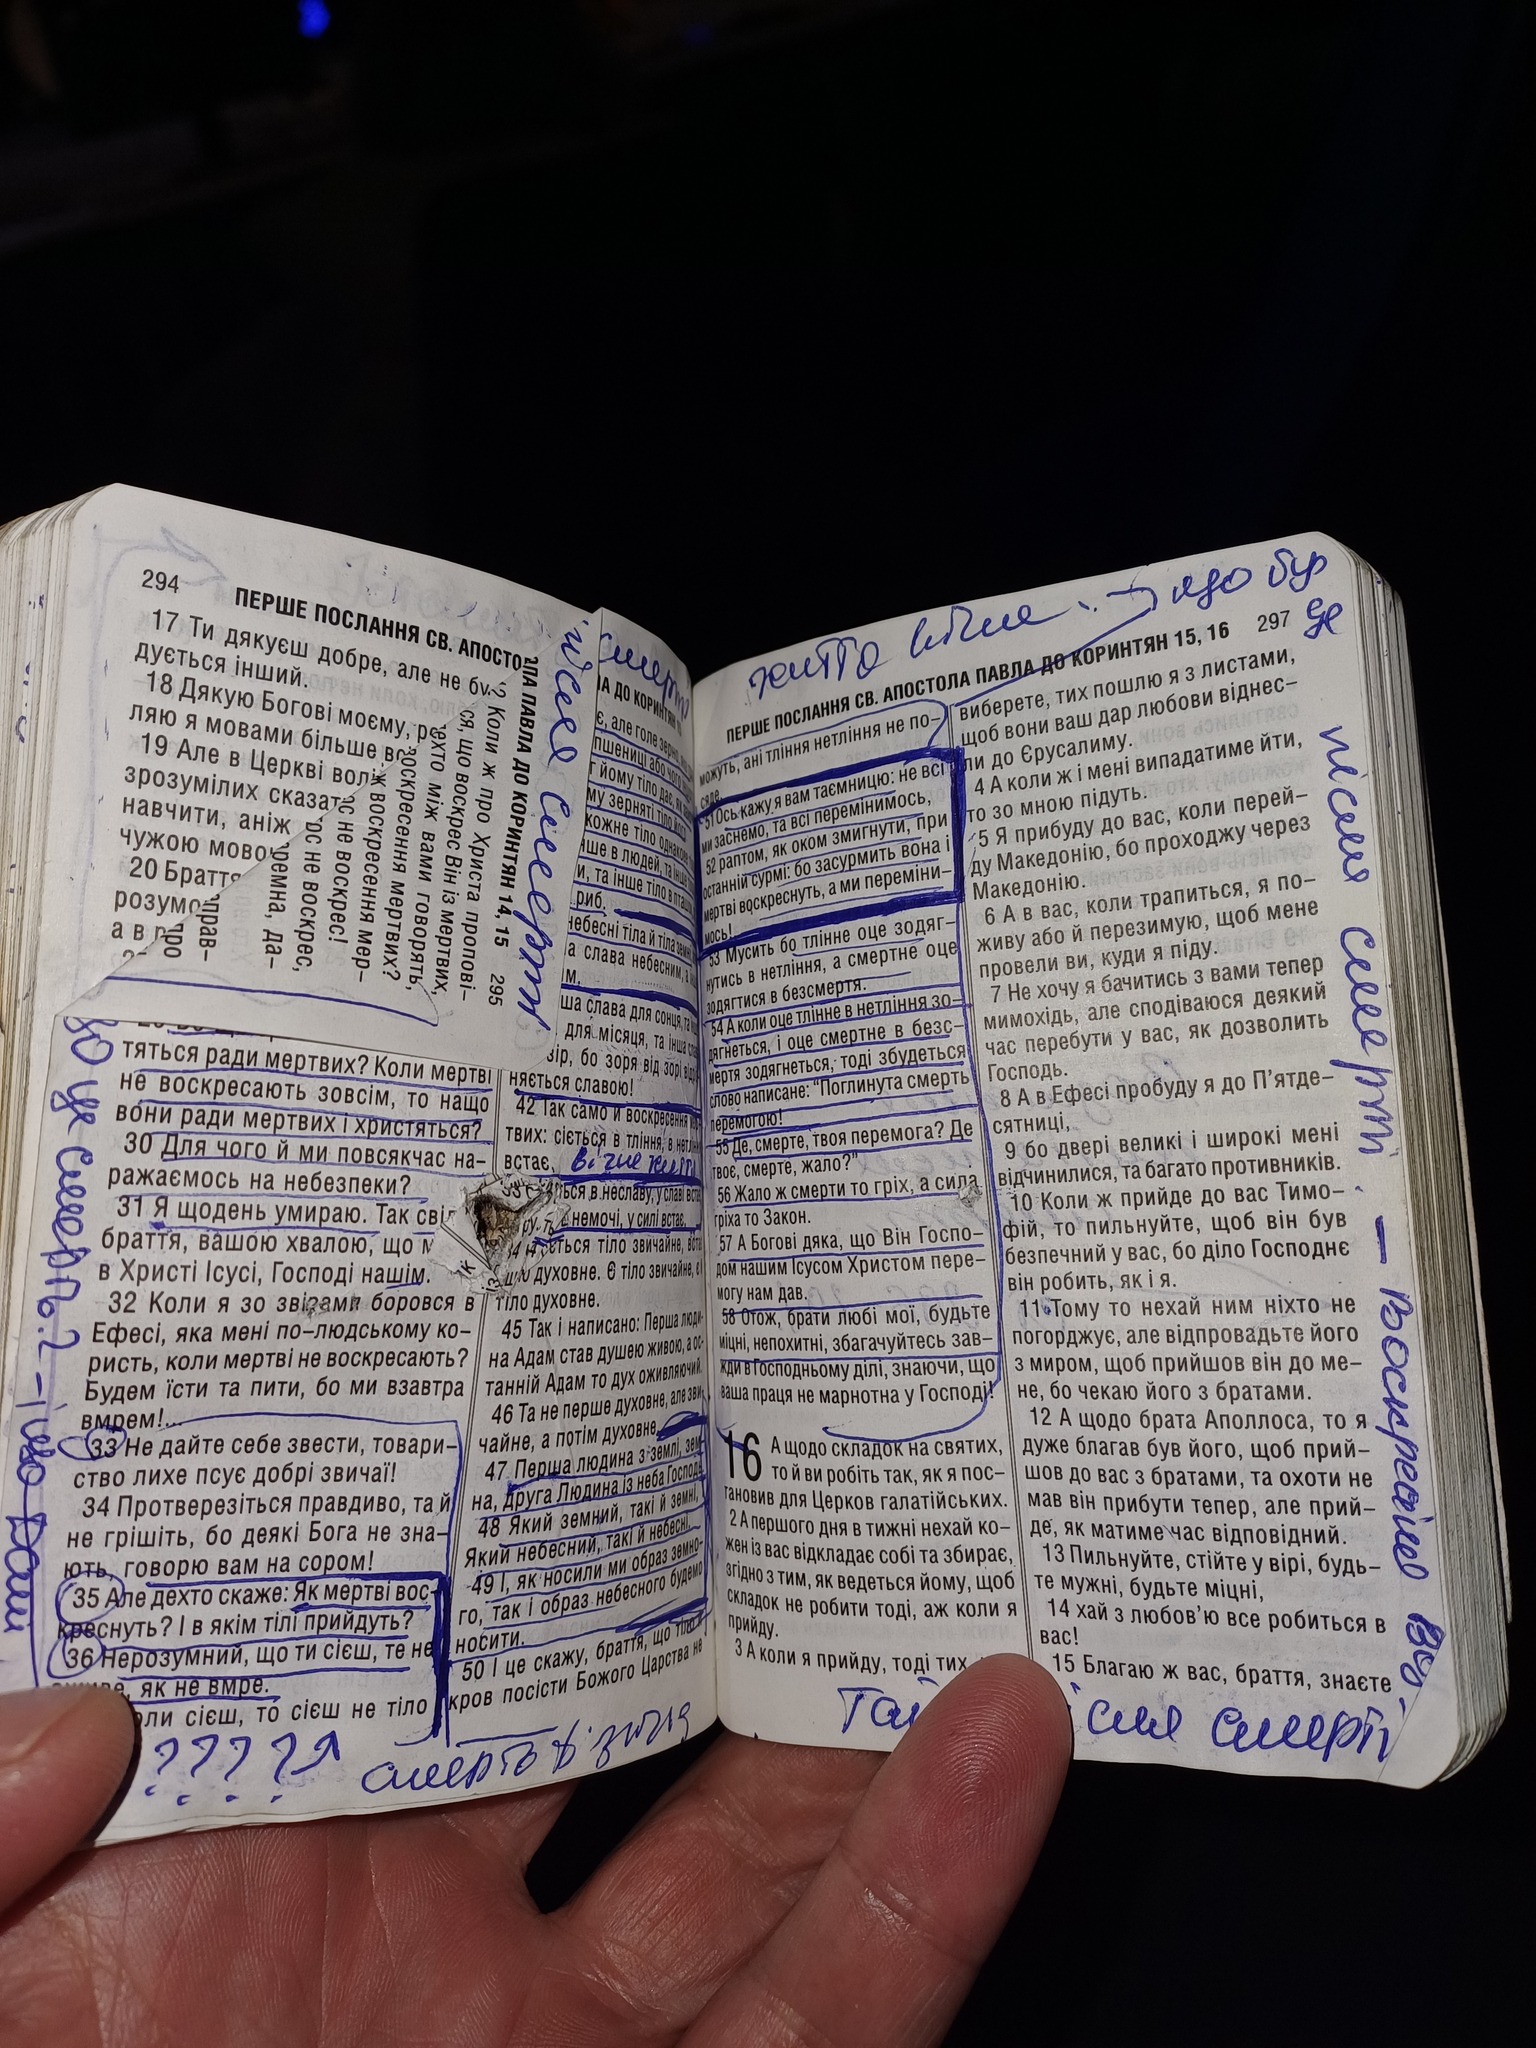 294
ПЕРШЕ ПОСЛАННЯ СВ. АПОСТО
17 Ти дякуєш добре, але не бу-
дується інший.
18 Дякую Богові моєму,
ляю я мовами більше
19 Але в Церкві
зрозумілих сказат
навчити, аніж
чужою мово
20 Браття
розумо
а в
ЛА ПАВЛА ДО КОРИНТЯН 14, 15 295
Коли ж про Христа пропові-
ся, що воскрес Він із мертвих,
дехто між вами говорять,
воскресення мертвих?
ж воскресення мер-
ос не воскрес!
ос не воскрес,
ремна, да-
прав-
про
після смерті
смерті
ЛА ДО КОРИНТЯН
що це смерть? – і що далі
тяться ради мертвих? Коли мертві
не воскресають зовсім, то нащо
вони ради мертвих і христяться?
30 Для чого й ми повсякчас на-
ражаємось на небезпеки?
31 Я щодень умираю. Так сві
браття, вашою хвалою, що м
в Христі Ісусі, Господі нашім.
32 Коли я зо звірами боровся в
Ефесі, яка мені по-людському ко-
ристь, коли мертві не воскресають?
Будем їсти та пити, бо ми взавтра
вмрем!...
33 Не дайте себе звести, товари-
ство лихе псує добрі звичаї!
34 Протверезіться правдиво, та й
не грішіть, бо деякі Бога не зна-
ють, говорю вам на сором!
35 Але дехто скаже: Як мертві вос-
креснуть? І в якім тілі прийдуть?
36 Нерозумний, що ти сієш, те не
, як не вмре.
оли сієш, то сієш не тіло
????
є, але голе зерно,
пшениці або чого
г йому тіло дає, як
му зерняті тіло його
кожне тіло однакове
інше в людей, та інше
и, та інше тіло в пташ
риб.
небесні тіла й тіла земні
а слава небесним, а
м.
ша слава для сонця, та інша
для місяця, та інша сла
зір, бо зоря від зорі від
няється славою!
42 Так само й воскресення мер-
твих: сіється в тління, в нетлін
встає,
вічне життя
ться в неславу, у славі вст
в немочі, у силі встає,
44 сіється тіло звичайне, вста
духовне. Є тіло звичайне, є й
тіло духовне.
45 Так і написано: Перша люди-
на Адам став душею живою, а ос-
танній Адам то дух оживляючий.
46 Та не перше духовне, але зви-
чайне, а потім духовне.
47 Перша людина з землі, зем-
на, друга Людина із неба Господь.
48 Який земний, такі й земні,
Який небесний, такі й небесні.
49 І, як носили ми образ земно-
го, так і образ небесного будемо
носити.
50 І це скажу, браття, що тіло й
кров посісти Божого Царства не
життя вічне → що буде
ПЕРШЕ ПОСЛАННЯ СВ. АПОСТОЛА ПАВЛА ДО КОРИНТЯН 15, 16 297
можуть, ані тління нетління не по-
сяде.
51 Ось кажу я вам таємницю: не всі
ми заснемо, та всі перемінимось,
52 раптом, як оком змигнути, при
останній сурмі: бо засурмить вона і
мертві воскреснуть, а ми переміни-
мось!
53 Мусить бо тлінне оце зодяг-
нутись в нетління, а смертне оце
зодягтися в безсмертя.
54 А коли оце тлінне в нетління зо-
дягнеться, і оце смертне в безс-
мертя зодягнеться, тоді збудеться
слово написане: “Поглинута смерть
перемогою!
55 Де, смерте, твоя перемога? Де
твоє, смерте, жало?”
56 Жало ж смерти то гріх, а сила
гріха то Закон.
57 А Богові дяка, що Він Госпо-
дом нашим Ісусом Христом пере-
могу нам дав.
58 Отож, брати любі мої, будьте
міцні, непохитні, збагачуйтесь зав-
жди в Господньому ділі, знаючи, що
ваша праця не марнотна у Господі!
16 А щодо складок на святих,
то й ви робіть так, як я пос-
тановив для Церков галатійських.
2 А першого дня в тижні нехай ко-
жен із вас відкладає собі та збирає,
згідно з тим, як ведеться йому, щоб
складок не робити тоді, аж коли я
прийду.
3 А коли я прийду, тоді тих,
виберете, тих пошлю я з листами,
щоб вони ваш дар любови віднес-
ли до Єрусалиму.
4 А коли ж і мені випадатиме йти,
то зо мною підуть.
5 Я прибуду до вас, коли перей-
ду Македонію, бо проходжу через
Македонію.
6 А в вас, коли трапиться, я по-
живу або й перезимую, щоб мене
провели ви, куди я піду.
7 Не хочу я бачитись з вами тепер
мимохідь, але сподіваюся деякий
час перебути у вас, як дозволить
Господь.
8 А в Ефесі пробуду я до П’ятде-
сятниці,
9 бо двері великі і широкі мені
відчинилися, та багато противників.
10 Коли ж прийде до вас Тимо-
фій, то пильнуйте, щоб він був
безпечний у вас, бо діло Господнє
він робить, як і я.
11 Тому то нехай ним ніхто не
погорджує, але відпровадьте його
з миром, щоб прийшов він до ме-
не, бо чекаю його з братами.
12 А щодо брата Аполлоса, то я
дуже благав був його, щоб прий-
шов до вас з братами, та охоти не
мав він прибути тепер, але прий-
де, як матиме час відповідний.
13 Пильнуйте, стійте у вірі, будь-
те мужні, будьте міцні,
14 хай з любов’ю все робиться в
вас!
15 Благаю ж вас, браття, знаєте
після смерті – воскресію
смерті